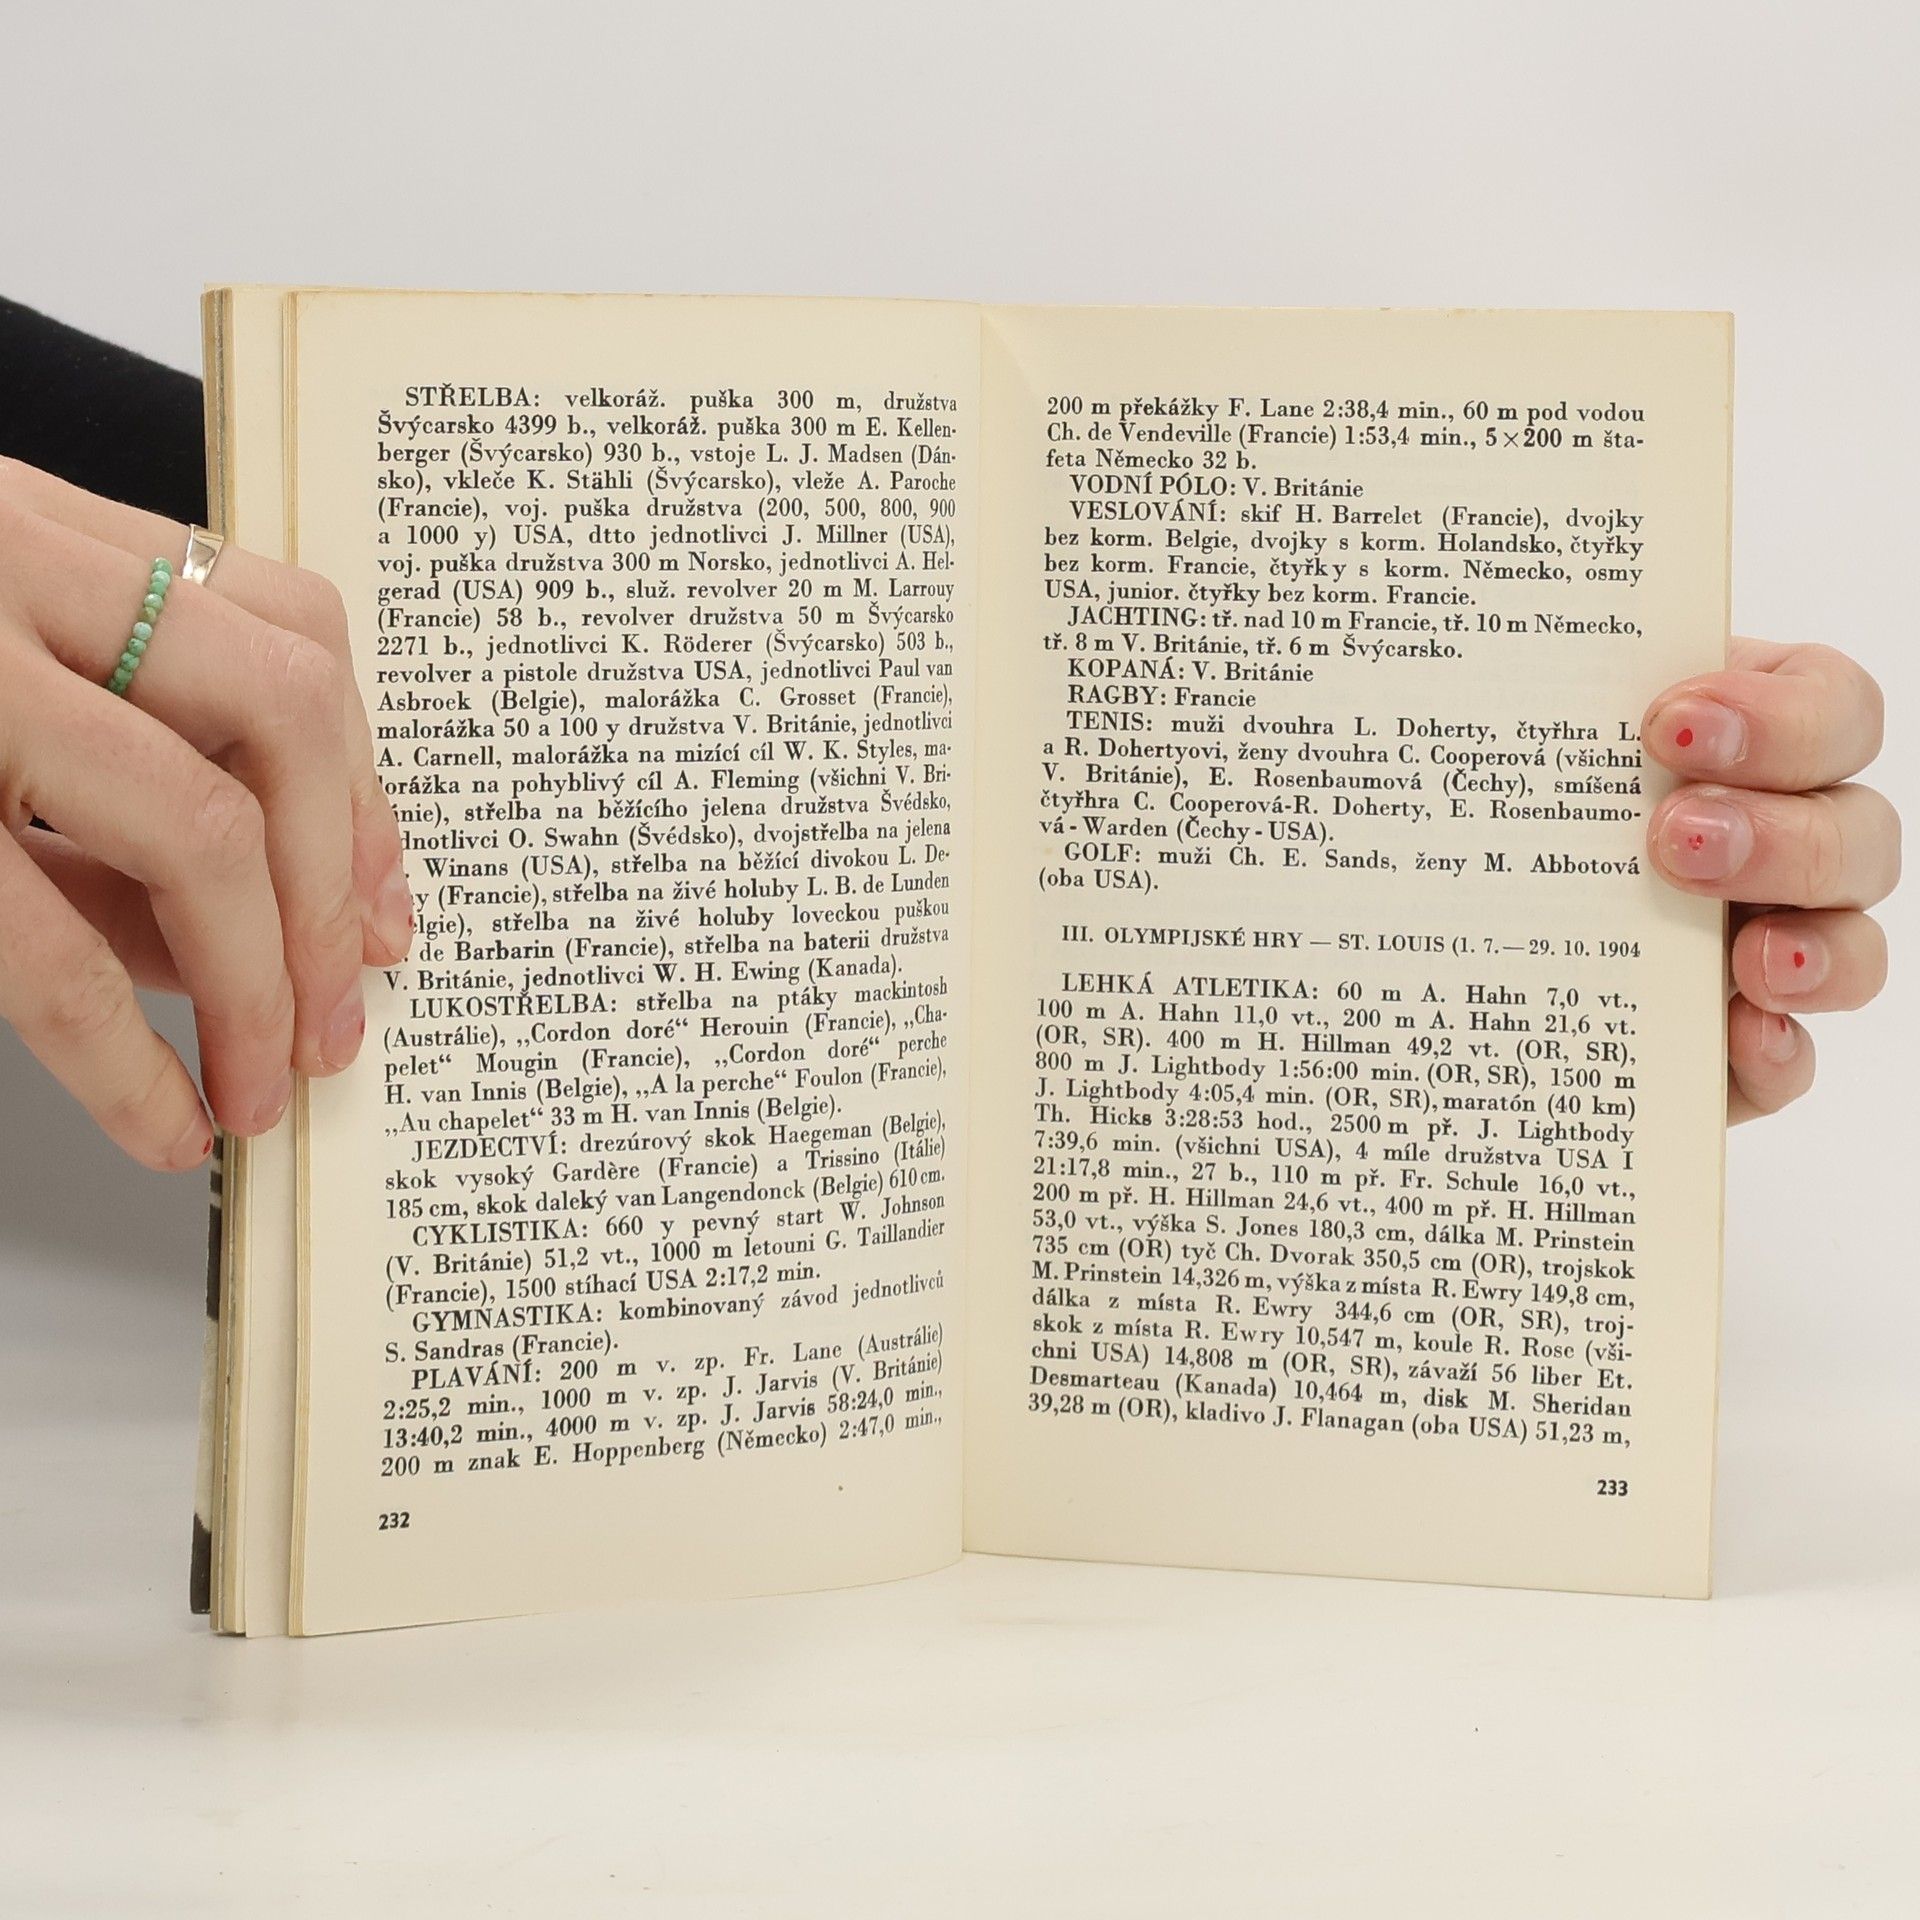 STŘELBA: velkoráž. puška 300 m, družstva
Švýcarsko 4399 b., velkoráž. puška 300 m E. Kellen-
berger (Švýcarsko) 930 b., vstoje L. J. Madsen (Dán-
sko), vkleče K. Stähli (Švýcarsko), vleže A. Paroche
(Francie), voj. puška družstva (200, 500, 800, 900
a 1000 y) USA, dtto jednotlivci J. Millner (USA),
voj. puška družstva 300 m Norsko, jednotlivci A. Hel-
gerad (USA) 909 b., služ. revolver 20 m M. Larrouy
(Francie) 58 b., revolver družstva 50 m Švýcarsko
2271 b., jednotlivci K. Röderer (Švýcarsko) 503 b.,
revolver a pistole družstva USA, jednotlivci Paul van
Asbroek (Belgie), malorážka C. Grosset (Francie),
malorážka 50 a 100 y družstva V. Británie, jednotlivci
A. Carnell, malorážka na mizící cíl W. K. Styles, ma-
lorážka na pohyblivý cíl A. Fleming (všichni V. Bri-
ánie), střelba na běžícího jelena družstva Švédsko,
dnotlivci O. Swahn (Švédsko), dvojstřelba na jelena
. Winans (USA), střelba na běžící divokou L. De-
y (Francie), střelba na živé holuby L. B. de Lunden
elgie), střelba na živé holuby loveckou puškou
. de Barbarin (Francie), střelba na baterii družstva
V. Británie, jednotlivci W. H. Ewing (Kanada).
LUKOSTŘELBA: střelba na ptáky mackintosh
(Austrálie), „Cordon doré“ Herouin (Francie), „Cha-
pelet“ Mougin (Francie), „Cordon doré“ perche
H. van Innis (Belgie), „A la perche“ Foulon (Francie),
„Au chapelet“ 33 m H. van Innis (Belgie).
JEZDECTVÍ: drezúrový skok Haegeman (Belgie),
skok vysoký Gardère (Francie) a Trissino (Itálie)
185 cm, skok daleký van Langendonck (Belgie) 610 cm.
CYKLISTIKA: 660 y pevný start W. Johnson
(V. Británie) 51,2 vt., 1000 m letouni G. Taillandier
(Francie), 1500 stíhací USA 2:17,2 min.
GYMNASTIKA: kombinovaný závod jednotlivců
S. Sandras (Francie).
PLAVÁNÍ: 200 m v. zp. Fr. Lane (Austrálie)
2:25,2 min., 1000 m v. zp. J. Jarvis (V. Británie)
13:40,2 min., 4000 m v. zp. J. Jarvis 58:24,0 min.,
200 m znak E. Hoppenberg (Německo) 2:47,0 min.,
232
200 m překážky F. Lane 2:38,4 min., 60 m pod vodou
Ch. de Vendeville (Francie) 1:53,4 min., 5×200 m šta-
feta Německo 32 b.
VODNÍ PÓLO: V. Británie
VESLOVÁNÍ: skif H. Barrelet (Francie), dvojky
bez korm. Belgie, dvojky s korm. Holandsko, čtyřky
bez korm. Francie, čtyřky s korm. Německo, osmy
USA, junior. čtyřky bez korm. Francie.
JACHTING: tř. nad 10 m Francie, tř. 10 m Německo,
tř. 8 m V. Británie, tř. 6 m Švýcarsko.
KOPANÁ: V. Británie
RAGBY: Francie
TENIS: muži dvouhra L. Doherty, čtyřhra L.
a R. Dohertyovi, ženy dvouhra C. Cooperová (všichni
V. Británie), E. Rosenbaumová (Čechy), smíšená
čtyřhra C. Cooperová-R. Doherty, E. Rosenbaumo-
vá - Warden (Čechy - USA).
GOLF: muži Ch. E. Sands, ženy M. Abbotová
(oba USA).
III. OLYMPIJSKÉ HRY — ST. LOUIS (1. 7.—29. 10. 1904
LEHKÁ ATLETIKA: 60 m A. Hahn 7,0 vt.,
100 m A. Hahn 11,0 vt., 200 m A. Hahn 21,6 vt.
(OR, SR). 400 m H. Hillman 49,2 vt. (OR, SR),
800 m J. Lightbody 1:56:00 min. (OR, SR), 1500 m
J. Lightbody 4:05,4 min. (OR, SR), maratón (40 km)
Th. Hicks 3:28:53 hod., 2500 m př. J. Lightbody
7:39,6 min. (všichni USA), 4 míle družstva USA I
21:17,8 min., 27 b., 110 m př. Fr. Schule 16,0 vt.,
200 m př. H. Hillman 24,6 vt., 400 m př. H. Hillman
53,0 vt., výška S. Jones 180,3 cm, dálka M. Prinstein
735 cm (OR) tyč Ch. Dvorak 350,5 cm (OR), trojskok
M. Prinstein 14,326 m, výška z místa R. Ewry 149,8 cm,
dálka z místa R. Ewry 344,6 cm (OR, SR), troj-
skok z místa R. Ewry 10,547 m, koule R. Rose (vši-
chni USA) 14,808 m (OR, SR), závaží 56 liber Et.
Desmarteau (Kanada) 10,464 m, disk M. Sheridan
39,28 m (OR), kladivo J. Flanagan (oba USA) 51,23 m,
233